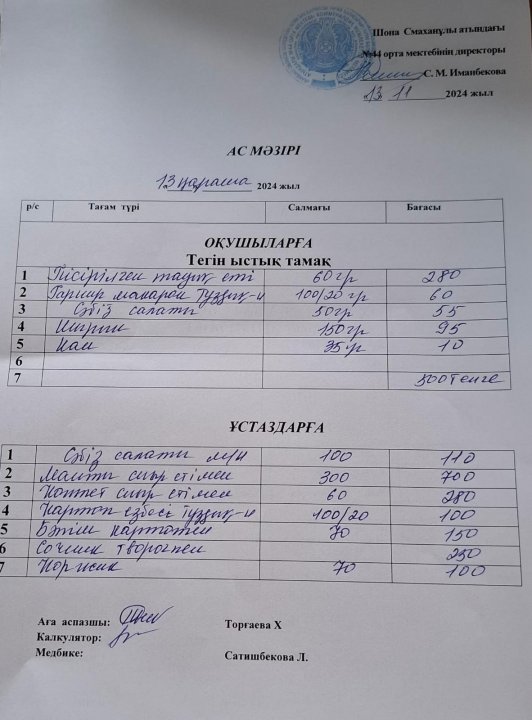 Шона Смаханұлы атындағы
№44 орта мектебінің директоры
С. М. Иманбекова
13 11 2024 жыл
АС МӘЗІРІ
13 қараша 2024 жыл
р/с Тағам түрі Салмағы Бағасы
ОҚУШЫЛАРҒА
Тегін ыстық тамақ
1 Пісірілген тауық еті 60гр 280
2 Гарнир макарон Тұздық-и 100/20 гр 60
3 Сәбіз салаты 50гр 55
4 150гр 95
5 Нан 35гр 10
6
7 500 тенге
ҰСТАЗДАРҒА
1 Сәбіз салаты м/и 100 110
2 Манты сиыр етімен 300 700
3 Котлет сиыр етімен 60 280
4 Картоп езбесі тұздық-и 100/20 100
5 Бәтіш картоппен 70 150
6 Сочник творогпен 250
7 Коржик 70 100
Аға аспазшы: Торғаева Х
Калкулятор:
Медбике: Сатишбекова Л.